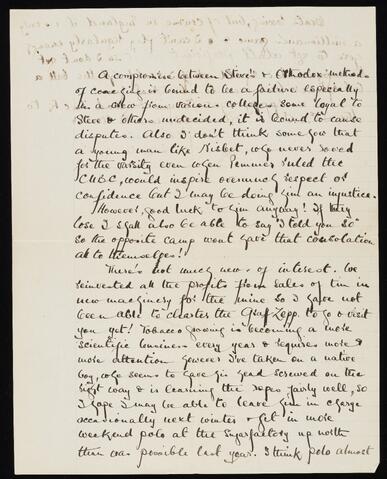 A compromise between Steve's & Orthodox methods
of coaching is bound to be a failure especially
in a crew from various colleges some loyal to
Steve & others undecided, it is bound to cause
disputes. Also I don't think somehow that
a young man like Nisbet, who never rowed
for the Varsity even when Pemmer ruled the
CUBC, would inspire overmuch respect or
confidence but I may be doing him an injustice.
However, good luck to him anyway! If they
lose I shall also be able to say "I told you so"
so the opposite camp wont have that consolation
all to themselves!
There's not much news of interest. We
reinvested all the profits from sales of tin in
new machinery for the mine so I have not
been able to charter the Graf Zepp. to go & visit
you yet! Tobacco growing is becoming a more
scientific business every year & requires more &
more attention however I've taken on a native
boy, who seems to have his head screwed on the
right way & is learning the ropes fairly well, so
I hope I may be able to leave him in charge
occasionally next winter & get in more
weekend polo at the Sugarfactory up north
than was possible last year. I think polo almost